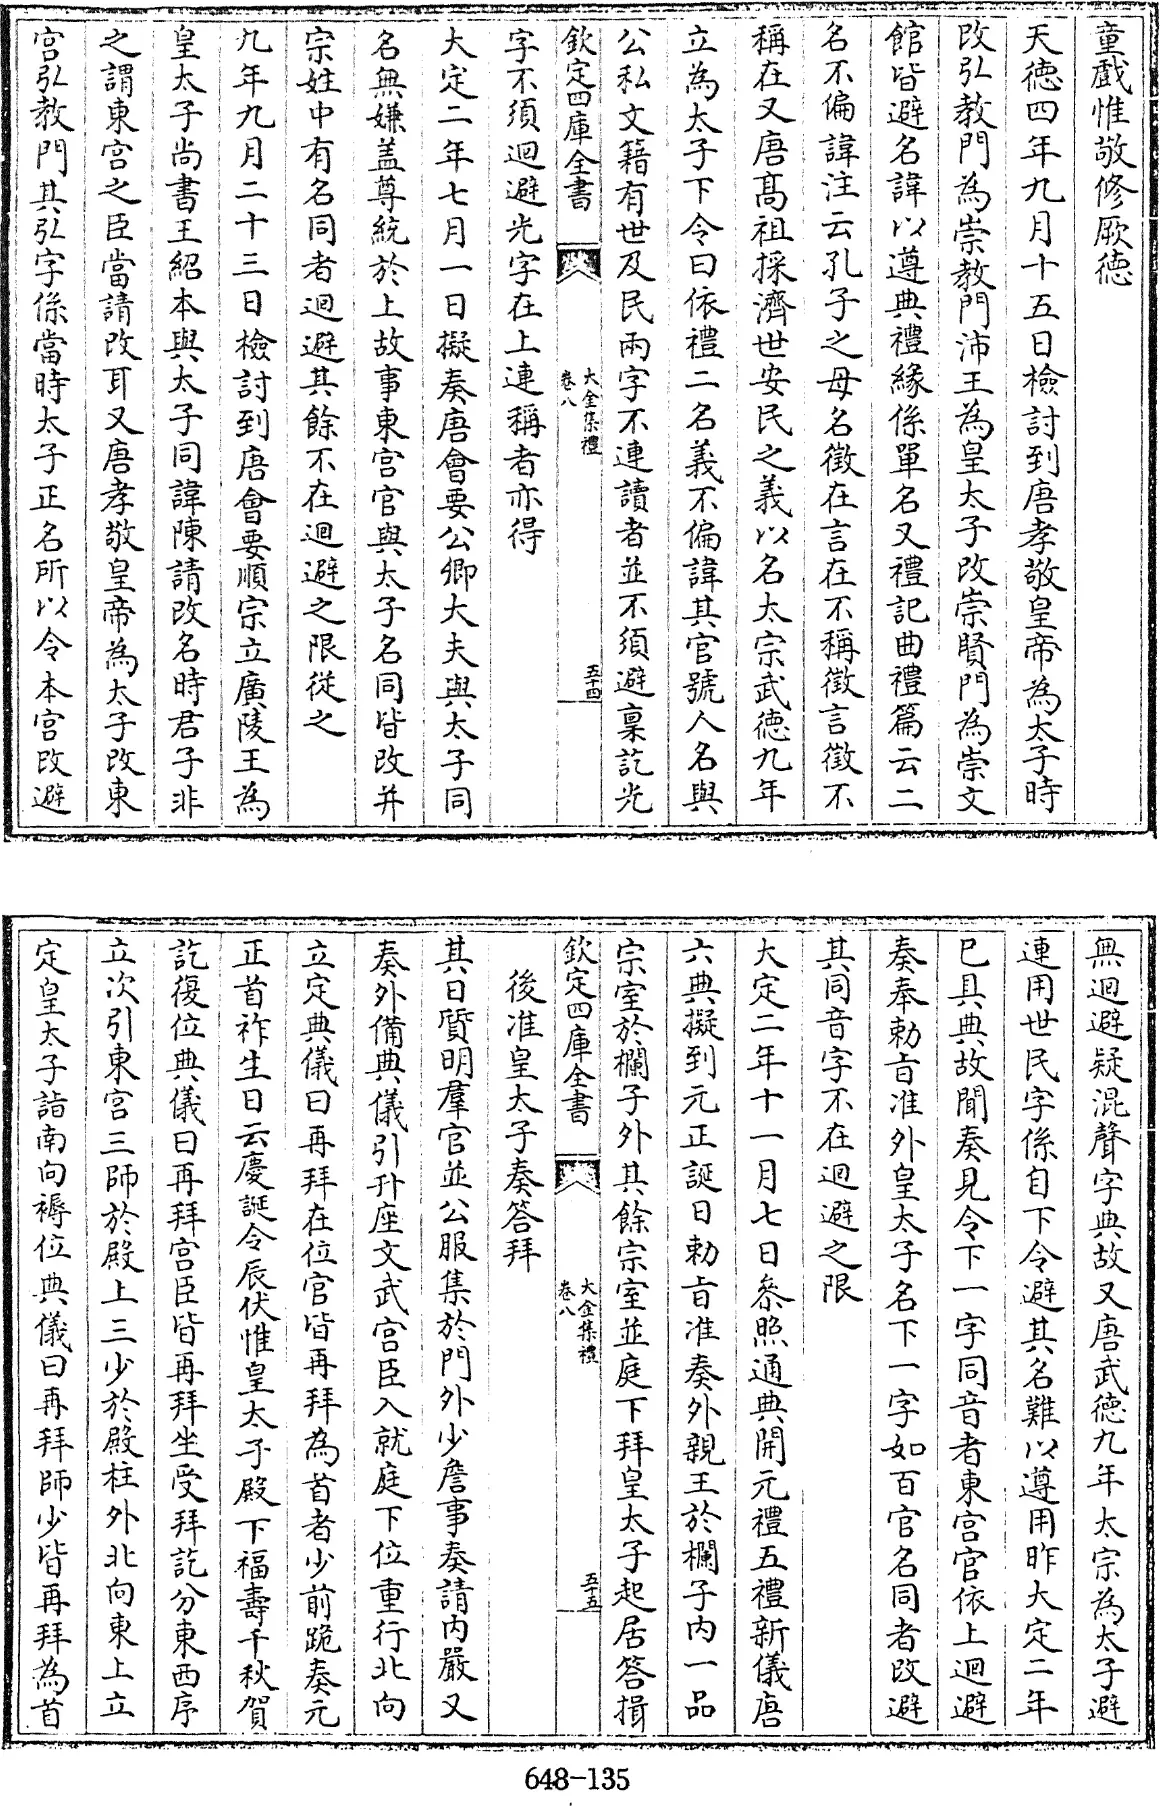 童戲惟敬修厥德
天德四年九月十五日檢討到唐孝敬皇帝為太子時
改弘教門為崇教門沛王為皇太子改崇賢門為崇文
館皆避名諱以遵典禮緣係單名又禮記曲禮篇云二
名不偏諱注云孔子之母名徵在言在不稱徵言徵不
稱在又唐髙祖採濟世安民之義以名太宗武德九年
立為太子下令曰依禮二名義不偏諱其官號人名與
公私文籍有世及民兩字不連讀者並不須避稟訖光
欽定四庫全書
大金集禮
卷八
五十四
字不須迴避光字在上連稱者亦得
大定二年七月一日擬奏唐會要公卿大夫與太子同
名無嫌盖尊統於上故事東宮官與太子名同皆改并
宗姓中有名同者迴避其餘不在迴避之限從之
九年九月二十三日檢討到唐會要順宗立廣陵王為
皇太子尚書王紹本與太子同諱陳請改名時君子非
之謂東宮之臣當請改耳又唐孝敬皇帝為太子改東
宮弘教門其弘字係當時太子正名所以令本宮改避
無迴避疑混聲字典故又唐武德九年太宗為太子避
連用世民字係自下令避其名難以遵用昨大定二年
已具典故聞奏見令下一字同音者東宮官依上迴避
奏奉勅㫖准外皇太子名下一字如百官名同者改避
其同音字不在迴避之限
大定二年十一月七日叅照通典開元禮五禮新儀唐
六典擬到元正誕日勅㫖准奏外親王於欄子内一品
宗室於欄子外其餘宗室並庭下拜皇太子起居答揖
欽定四庫全書
大金集禮
卷八
五十五
後准皇太子奏答拜
其日質明羣官並公服集於門外少詹事奏請内嚴又
奏外備典儀引升座文武宮臣入就庭下位重行北向
立定典儀曰再拜在位官皆再拜為首者少前跪奏元
正首祚生日云慶誕令辰伏惟皇太子殿下福壽千秋賀
訖復位典儀曰再拜宮臣皆再拜坐受拜訖分東西序
立次引東宮三師於殿上三少於殿柱外北向東上立
定皇太子詣南向褥位典儀曰再拜師少皆再拜為首
648-135